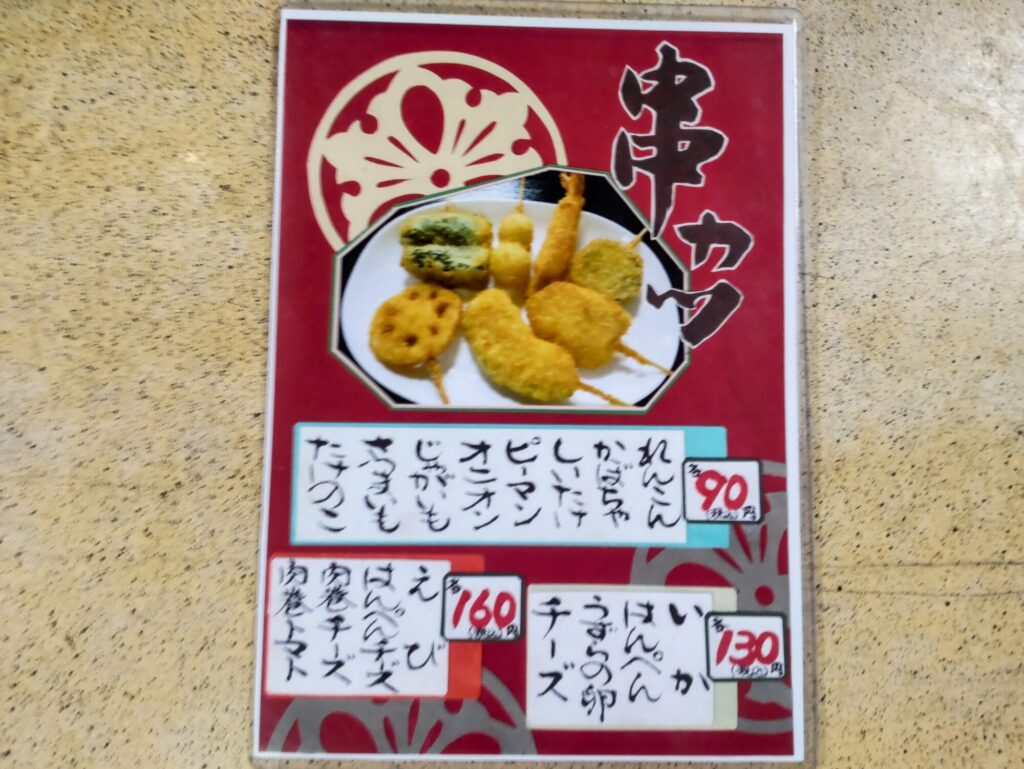 串カツ
れんこん
かぼちゃ
しいたけ
ピーマン
オニオン
じゃがいも
さつまいも
たけのこ
各90円
(税込)
いか
はんぺん
うずらの卵
チーズ
各130円
(税込)
えび
はんぺんチーズ
肉巻チーズ
肉巻トマト
各160円
(税込)